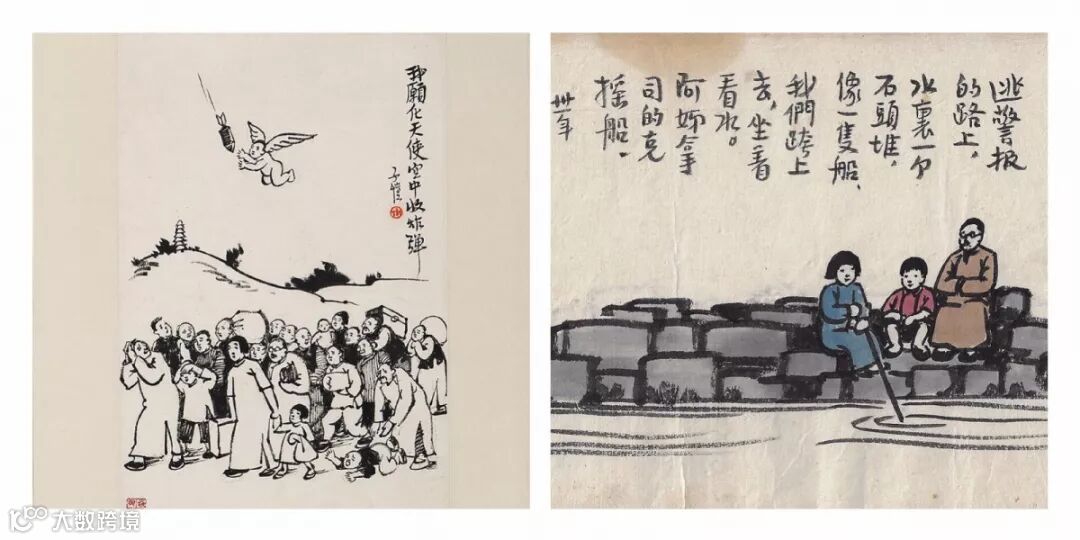 我願化天使空中收炸彈
子愷
逃警报
的路上,
水裏一个
石頭堆,
像一隻船、
我們跨上
去,坐着
看水。
阿姊拿
司的克
摇船.
卅一年
大数跨境